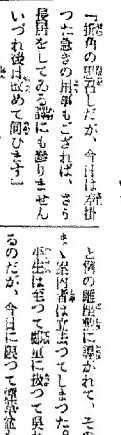 『折角の思召しだが、今日は差掛
つた急ぎの用事もござれば、さう
長居をしてゐる譯にも參りません
いづれ後は改めて伺ひます』
と例の離座敷に導かれて、その
まゝ案内者は立去つてしまつた。
平生は至つて鄭重に扱つて呉れ
るのだが、今日に限つて